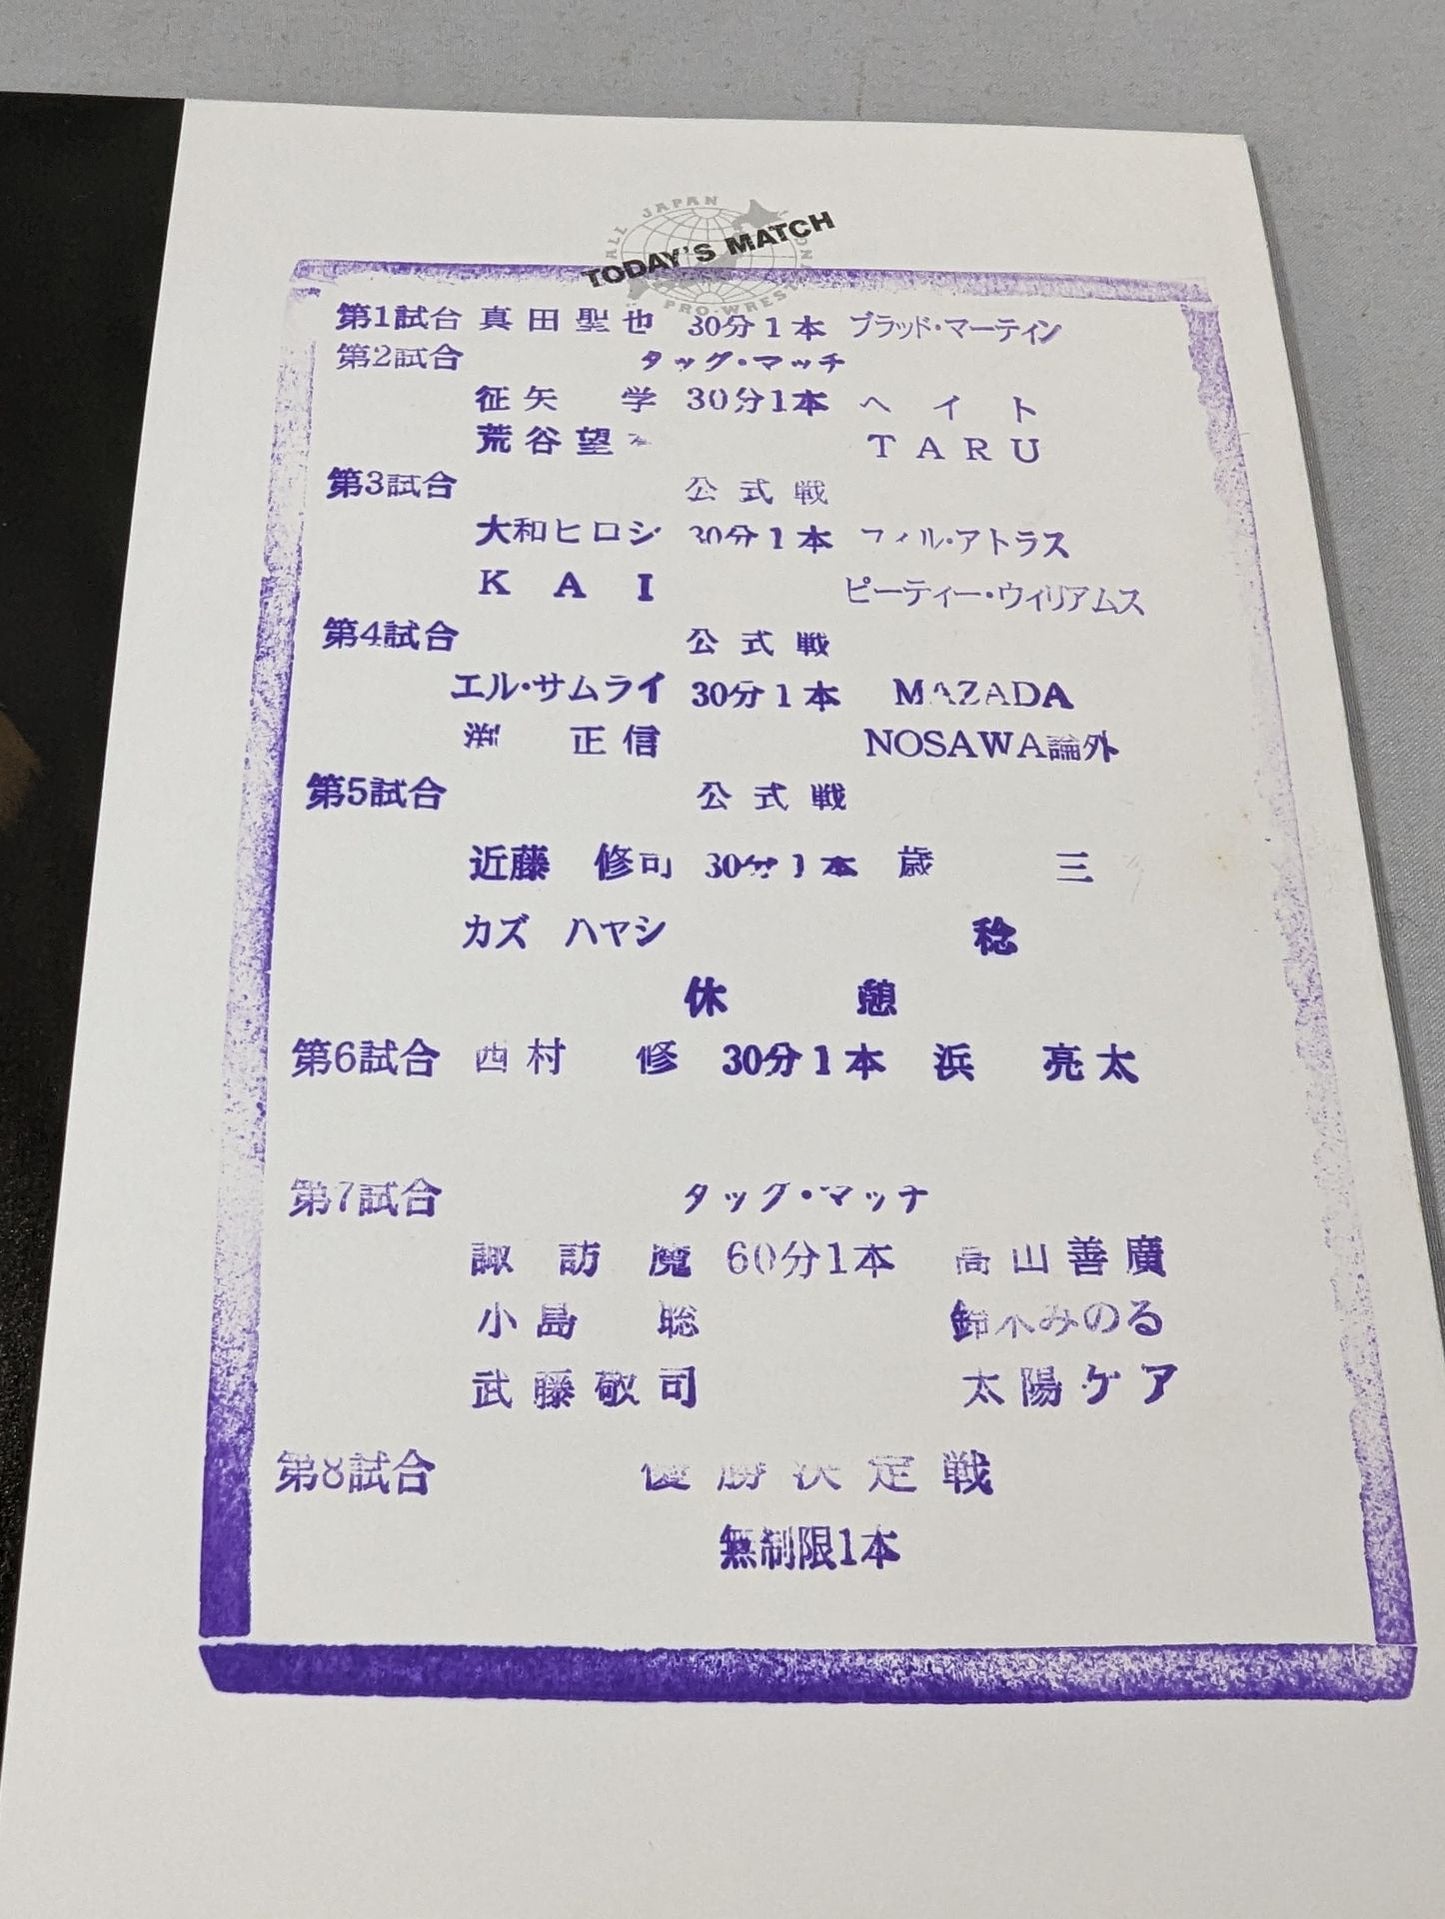 ALL JAPAN PRO-WRESTLING
TODAY'S MATCH
第1試合 真田聖也 30分1本 ブラッド・マーティン
第2試合 タッグ・マッチ
征矢 学 30分1本 ヘイト
荒谷望 TARU
第3試合 公式戦
大和ヒロシ 30分1本 フィル・アトラス
KAI ピーティー・ウィリアムス
第4試合 公式戦
エル・サムライ 30分1本 MAZADA
渕 正信 NOSAWA論外
第5試合 公式戦
近藤 修司 30分1本 歳三
カズ ハヤシ 稔
休憩
第6試合 西村 修 30分1本 浜 亮太
第7試合 タッグ・マッチ
諏訪魔 60分1本 高山善廣
小島 聡 鈴木みのる
武藤敬司 太陽ケア
第8試合 優勝決定戦
無制限1本